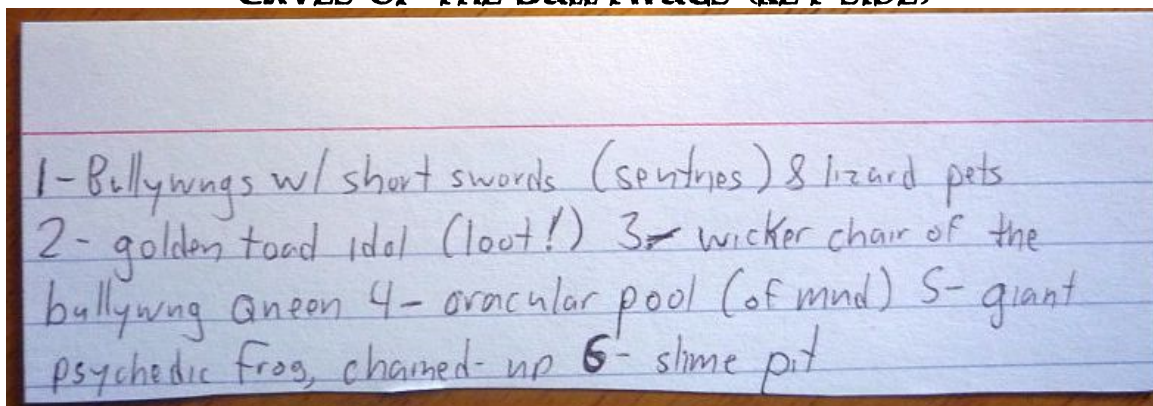 CAVES OF THE BULLYWUGS (KEY SIDE)
1-Bullywugs w/ short swords (sentries) & lizard pets
2- golden toad idol (loot!) 3- wicker chair of the
bullywug Queen 4- oracular pool (of mud) 5- giant
psychedic frog, chained-up 6- slime pit